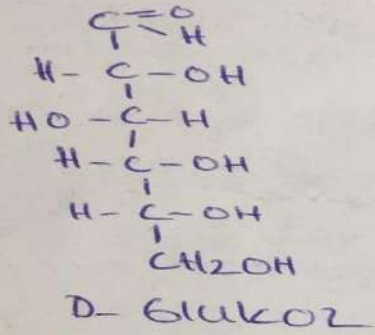 C=O
H
H- C-OH
HO-C-H
H-C-OH
H-C-OH
CH2OH
D- Glukoz